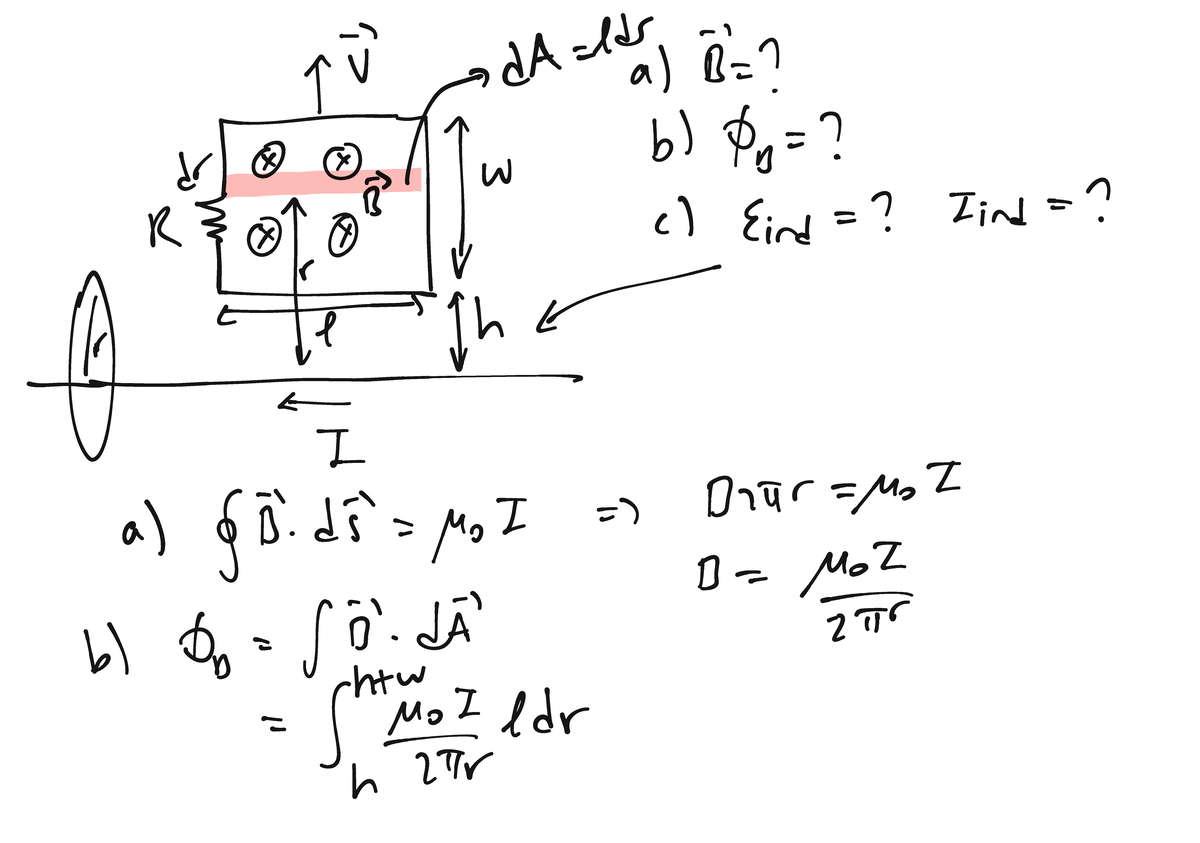 V⃗
dA = ldr
a) B⃗ = ?
b) ϕ_B = ?
c) ε_ind = ? I_ind = ?
dr
B⃗
w
R
r
l
h
r
I
a) ∮ B⃗ · ds⃗ = μ₀ I => B2πr = μ₀ I
B = μ₀ I / 2πr
b) ϕ_B = ∫ B⃗ · dA⃗
= ∫_h^{h+w} μ₀ I / 2πr l dr